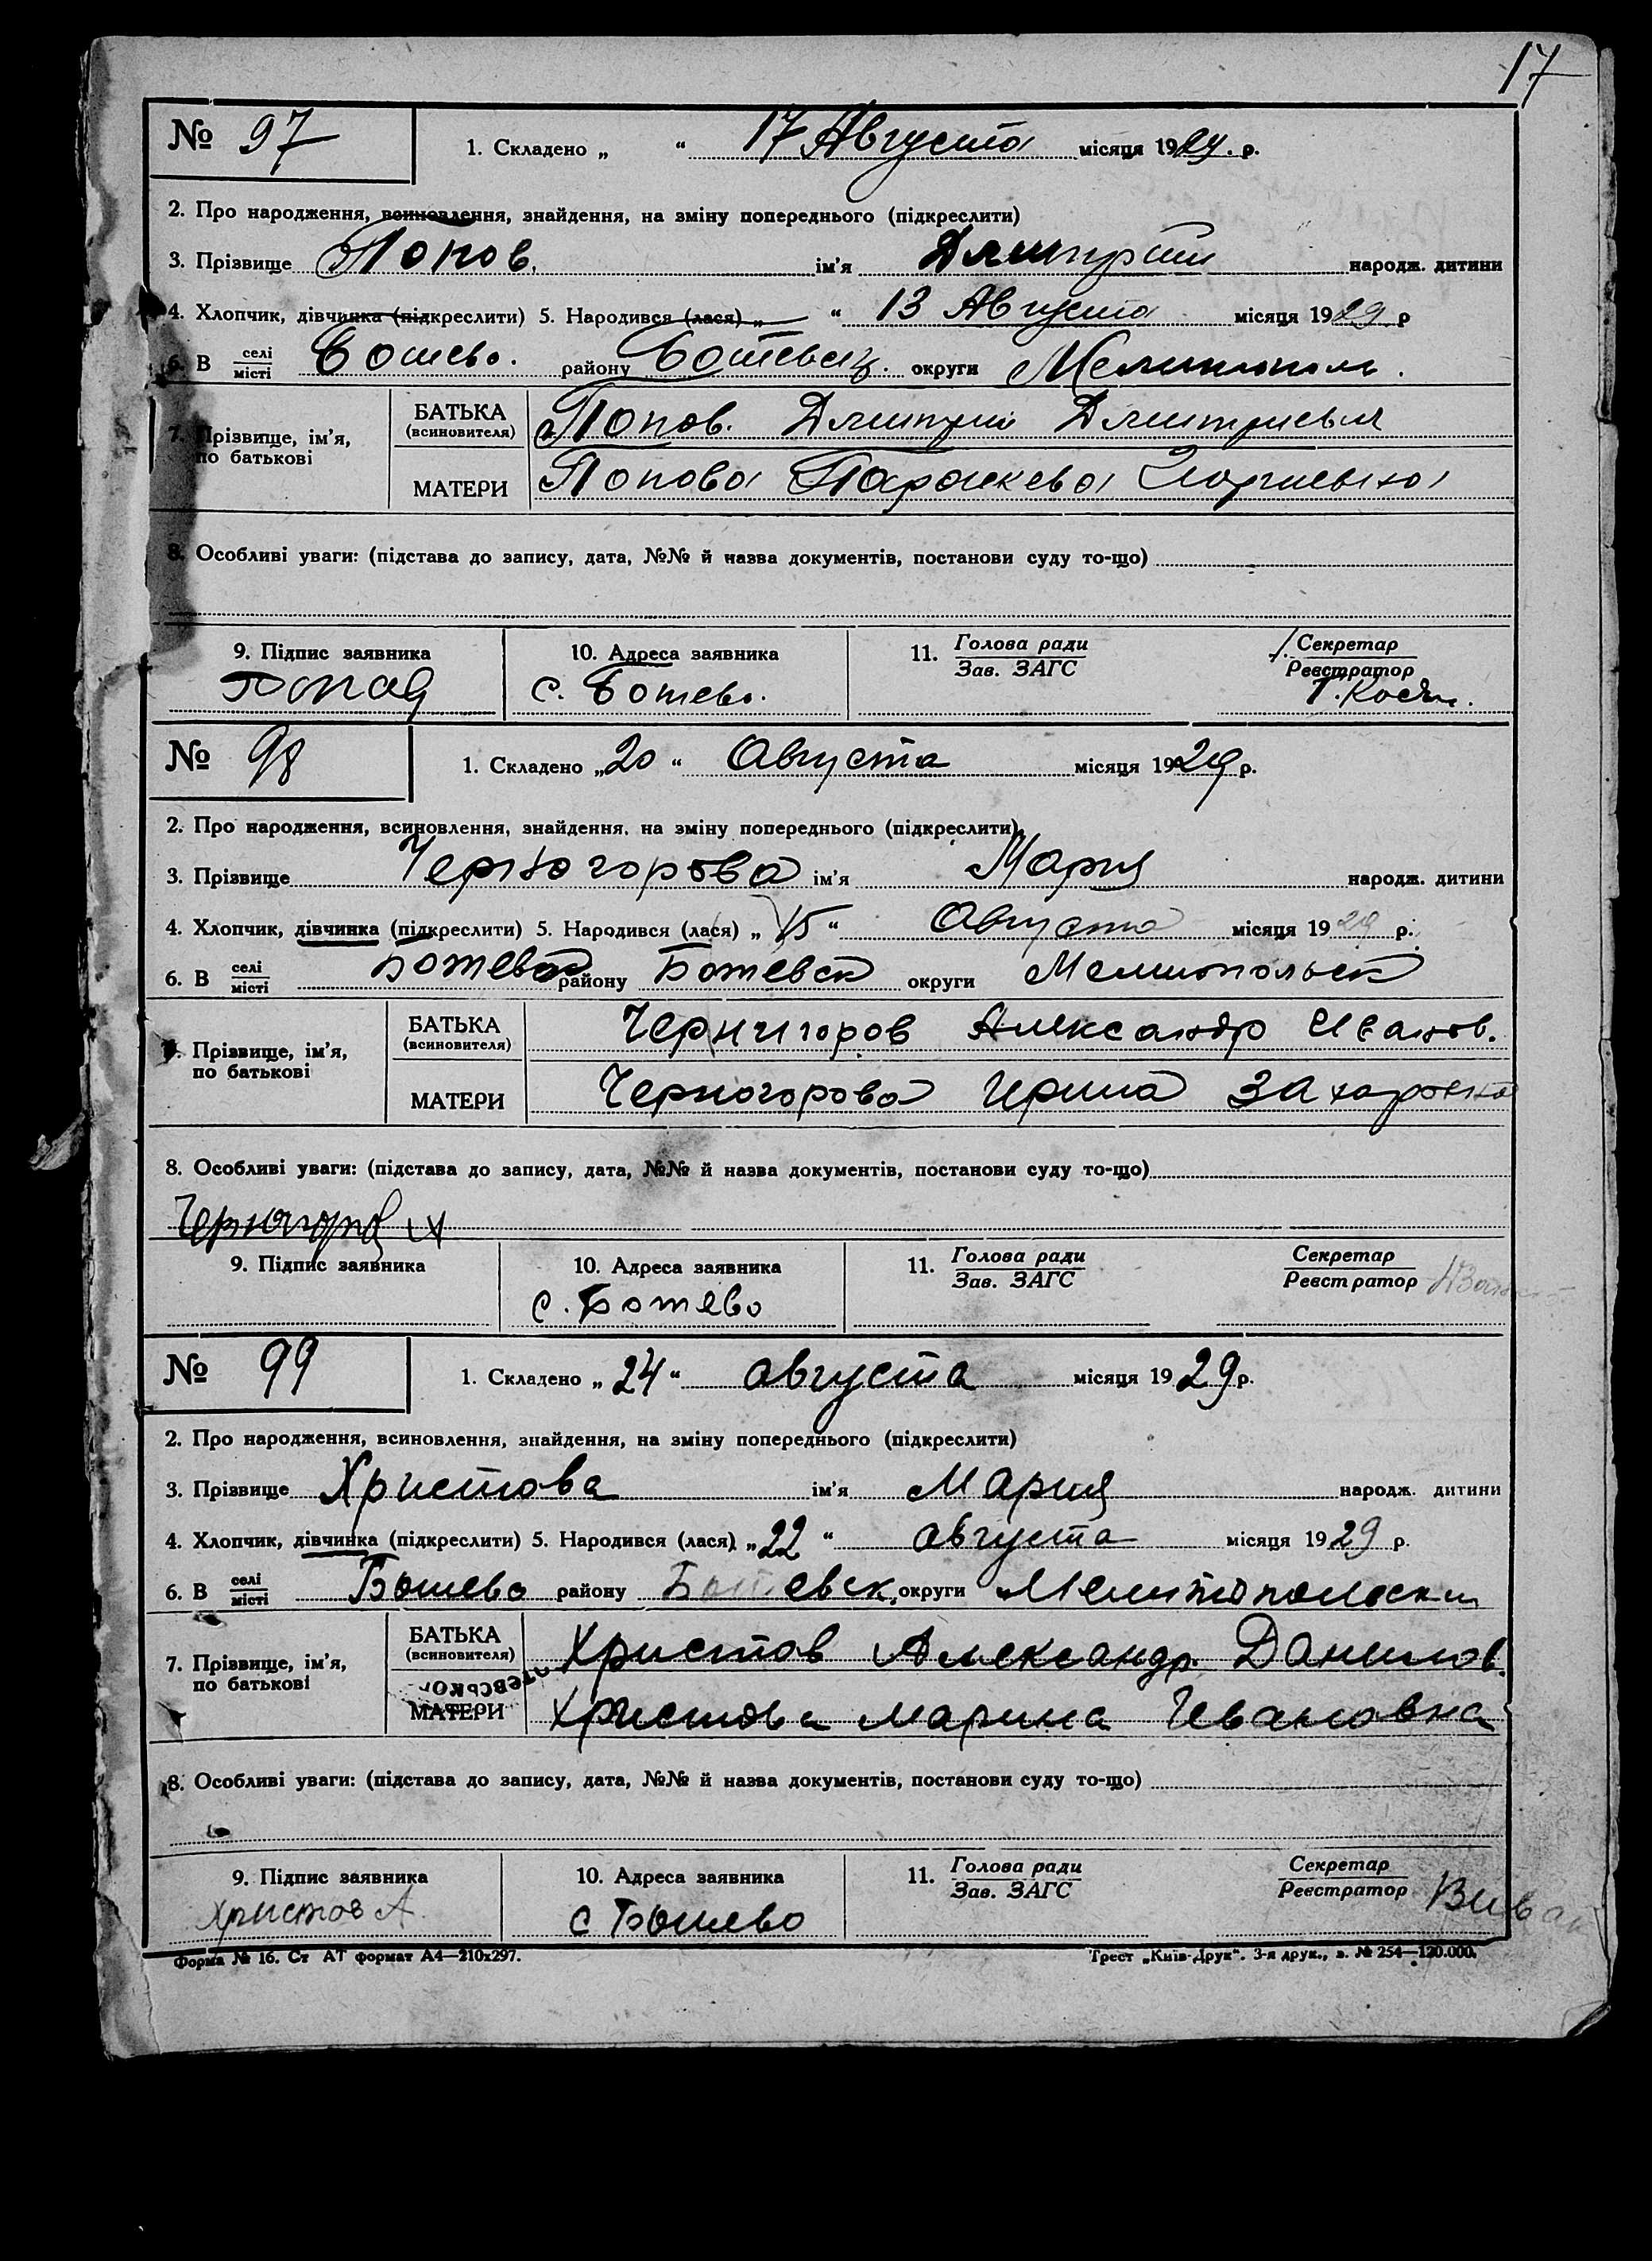 17
№ 97
1. Складено „ “ 17 Августа місяця 1929. р.
2. Про народження, всиновлення, знайдення, на зміну попереднього (підкреслити)
3. Прізвище Попов. ім'я Дмитрий народж. дитини
4. Хлопчик, дівчинка (підкреслити) 5. Народився (лася) „ “ 13 Августа місяця 1929 р
6. В селі місті Ботево. району Ботевск. округи Мелитополь.
7. Прізвище, ім'я, по батькові
БАТЬКА (всиновителя) Попов. Дмитрий Дмитриевич
МАТЕРИ Попова Параскева
8. Особливі уваги: (підстава до запису, дата, №№ й назва документів, постанови суду то-що)
9. Підпис заявника 10. Адреса заявника 11. Голова ради Зав. ЗАГС Секретар Реєстратор
с. Ботево.
№ 98
1. Складено „20“ Августа місяця 1929 р.
2. Про народження, всиновлення, знайдення, на зміну попереднього (підкреслити)
3. Прізвище Черногорова ім'я Мария народж. дитини
4. Хлопчик, дівчинка (підкреслити) 5. Народився (лася) „15“ Августа місяця 1929 р.
6. В селі місті Ботево району Ботевск округи Мелитопольск
7. Прізвище, ім'я, по батькові
БАТЬКА (всиновителя) Черногоров Александр Иванов.
МАТЕРИ Черногорова Ирина Захаровна
8. Особливі уваги: (підстава до запису, дата, №№ й назва документів, постанови суду то-що)
Черногоров А
9. Підпис заявника 10. Адреса заявника 11. Голова ради Зав. ЗАГС Секретар Реєстратор
с. Ботево
№ 99
1. Складено „24“ августа місяця 1929 р.
2. Про народження, всиновлення, знайдення, на зміну попереднього (підкреслити)
3. Прізвище Христова ім'я Мария народж. дитини
4. Хлопчик, дівчинка (підкреслити) 5. Народився (лася) „22“ августа місяця 1929 р.
6. В селі місті Ботево району Ботевск. округи Мелитопольский
7. Прізвище, ім'я, по батькові
БАТЬКА (всиновителя) Христов Александр Данилов.
МАТЕРИ Христова Марина Ивановна
8. Особливі уваги: (підстава до запису, дата, №№ й назва документів, постанови суду то-що)
9. Підпис заявника 10. Адреса заявника 11. Голова ради Зав. ЗАГС Секретар Реєстратор
Христов А. с Ботево
Форма № 16. Ст АТ формат А4—210x297. Трест „Київ-Друк“. 3-я друк., з. № 254—120.000.